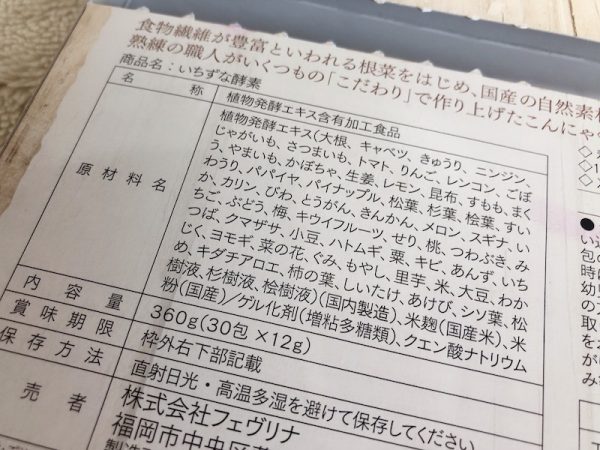 食物繊維が豊富といわれる根菜をはじめ、国産の自然素材
熟練の職人がいくつもの「こだわり」で作り上げたこんにゃ
商品名：いちずな酵素
名 称 植物発酵エキス含有加工食品
原材料名 植物発酵エキス(大根、キャベツ、きゅうり、ニンジン、
じゃがいも、さつまいも、トマト、りんご、レンコン、ごぼ
う、やまいも、かぼちゃ、生姜、レモン、昆布、すもも、まく
わうり、パパイヤ、パイナップル、松葉、杉葉、桧葉、すい
か、カリン、びわ、とうがん、きんかん、メロン、スギナ、い
ちご、ぶどう、梅、キウイフルーツ、せり、桃、つわぶき、み
つば、クマザサ、小豆、ハトムギ、粟、キビ、あんず、いち
じく、ヨモギ、菜の花、ぐみ、もやし、里芋、米、大豆、わか
め、キダチアロエ、柿の葉、しいたけ、あけび、シソ葉、松
樹液、杉樹液、桧樹液)(国内製造)、米麹(国産米)、米
粉(国産)/ゲル化剤(増粘多糖類)、クエン酸ナトリウム
内容量 360g(30包×12g)
賞味期限 枠外右下部記載
保存方法 直射日光・高温多湿を避けて保存してください
売者 株式会社フェヴリナ
福岡市中央区